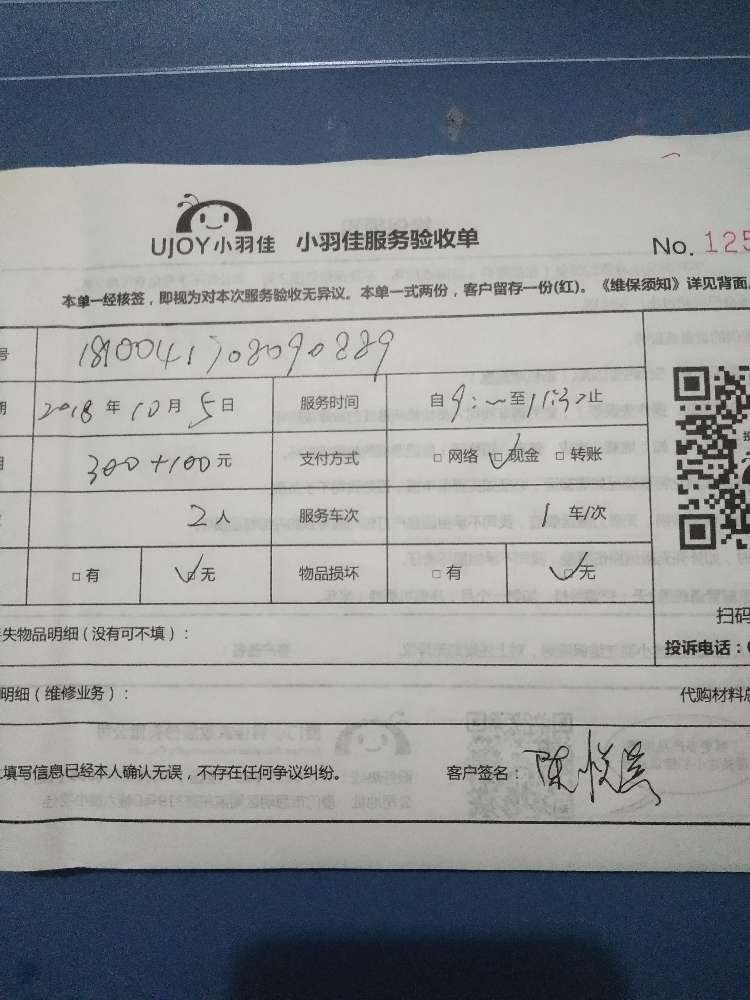 UJOY小羽佳 小羽佳服务验收单
No. 125
本单一经核签，即视为对本次服务验收无异议。本单一式两份，客户留存一份(红)。《维保须知》详见背面。
号 1810041708090889
期 2018 年 10 月 5 日 服务时间 自 9: 至 11:30 止
300+100 元 支付方式 □ 网络 ☑ 现金 □ 转账
2 人 服务车次 1 车/次
□ 有 ☑ 无 物品损坏 □ 有 ☑ 无
扫码
失物品明细（没有可不填）：
投诉电话：
明细（维修业务）： 代购材料总
填写信息已经本人确认无误，不存在任何争议纠纷。 客户签名：